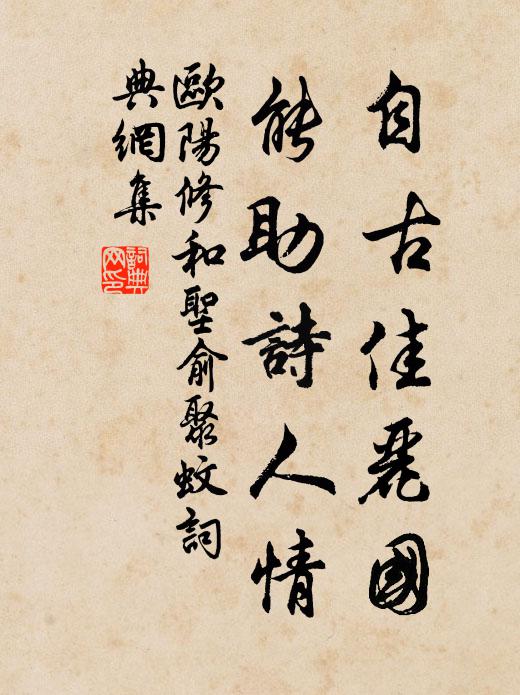 自古佳麗國
能助詩人情
歐陽修和聖俞聚蚊詞
典網集
詞典網印